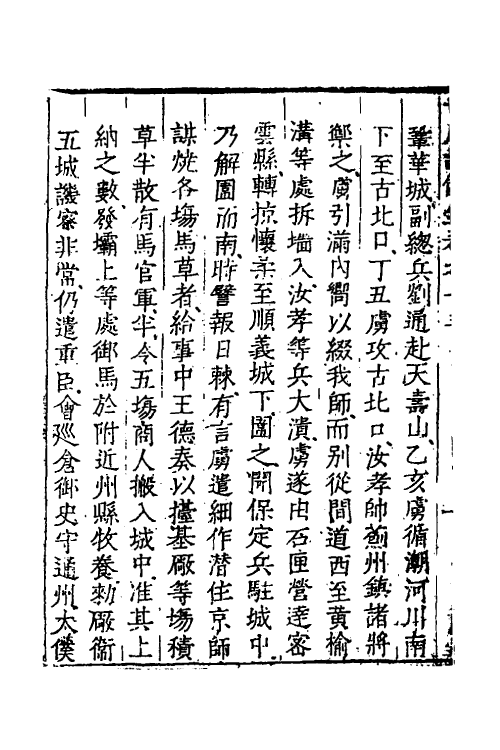 鞏華城、副總兵劉通赴天壽山、乙亥虜循潮河川南
下至古北口、丁丑虜攻古北口、汝孝帥薊州鎮諸將
禦之、虜引滿內嚮以綴我師、而別從間道西至黃榆
溝等處拆墻入、汝孝等兵大潰、虜遂由石匣營達密
雲縣、轉掠懷柔至順義城下、圍之、聞保定兵駐城中
乃解圍而南、時警報日棘、有言虜遣細作潛住京師
謀燒各塲馬草者、給事中王德奏以擡基厰等塲積
草半散有馬官軍、半令五塲商人搬入城中、准其上
納之數、發壩上等處御馬於附近州縣牧養、勑厰衛
五城譏察非常、仍遣重臣、會廵倉御史守通州、太僕